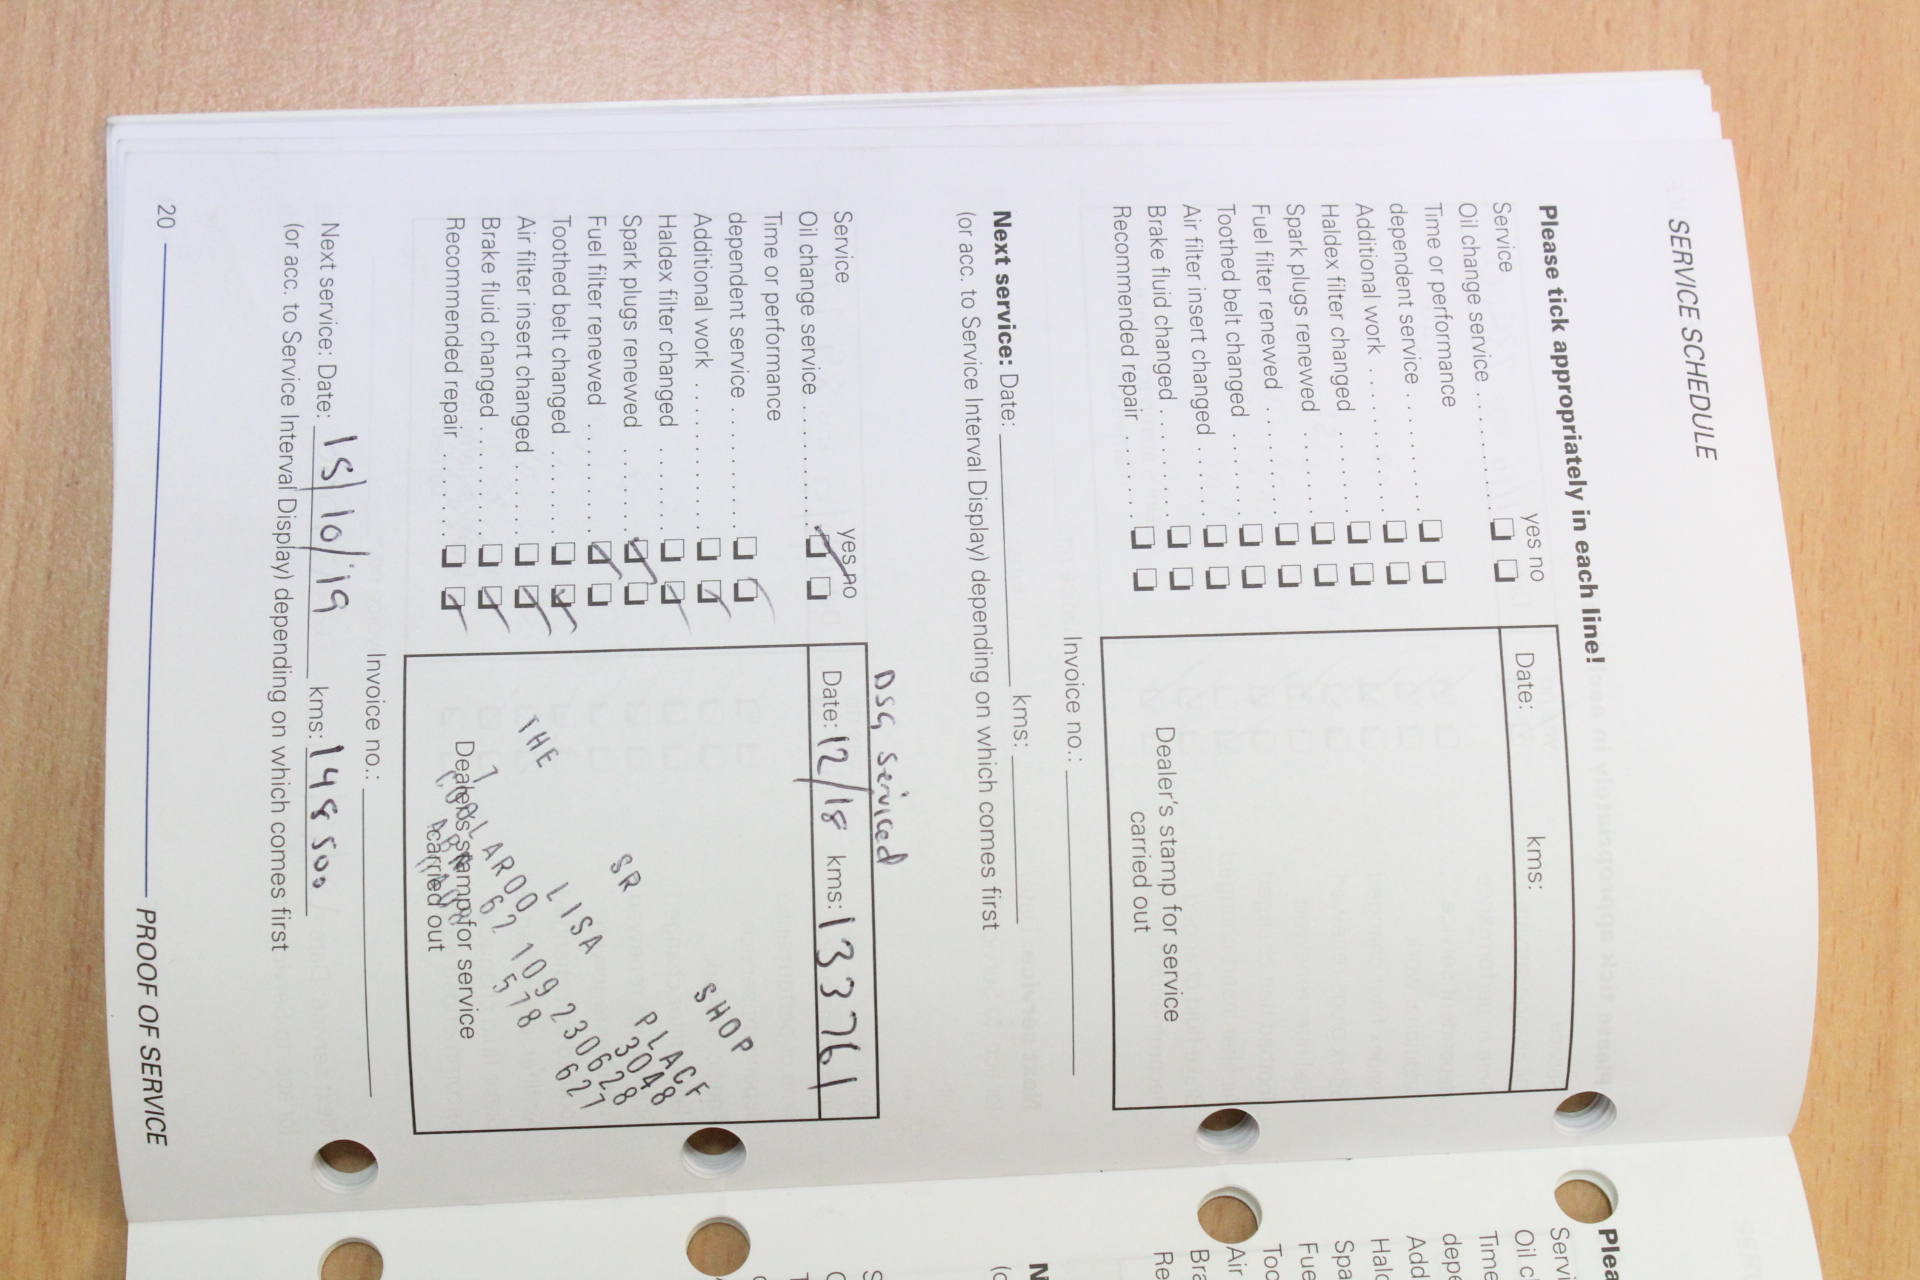 SERVICE SCHEDULE
Please tick appropriately in each line!
Service yes no
Oil change service
Time or performance
dependent service
Additional work
Haldex filter changed
Spark plugs renewed
Fuel filter renewed
Toothed belt changed
Air filter insert changed
Brake fluid changed
Recommended repair
Date: kms:
Dealer's stamp for service
carried out
Invoice no.:
Next service: Date: kms:
(or acc. to Service Interval Display) depending on which comes first
DSG Serviced
Service yes no
Oil change service
Time or performance
dependent service
Additional work
Haldex filter changed
Spark plugs renewed
Fuel filter renewed
Toothed belt changed
Air filter insert changed
Brake fluid changed
Recommended repair
Date: 12/18 kms: 133761
THE SR SHOP
7 LISA PLACE
3048
62 109 230 628
578 627
Dealer's stamp for service
carried out
Invoice no.:
Next service: Date: 15/10/19 kms: 148500
(or acc. to Service Interval Display) depending on which comes first
20 PROOF OF SERVICE